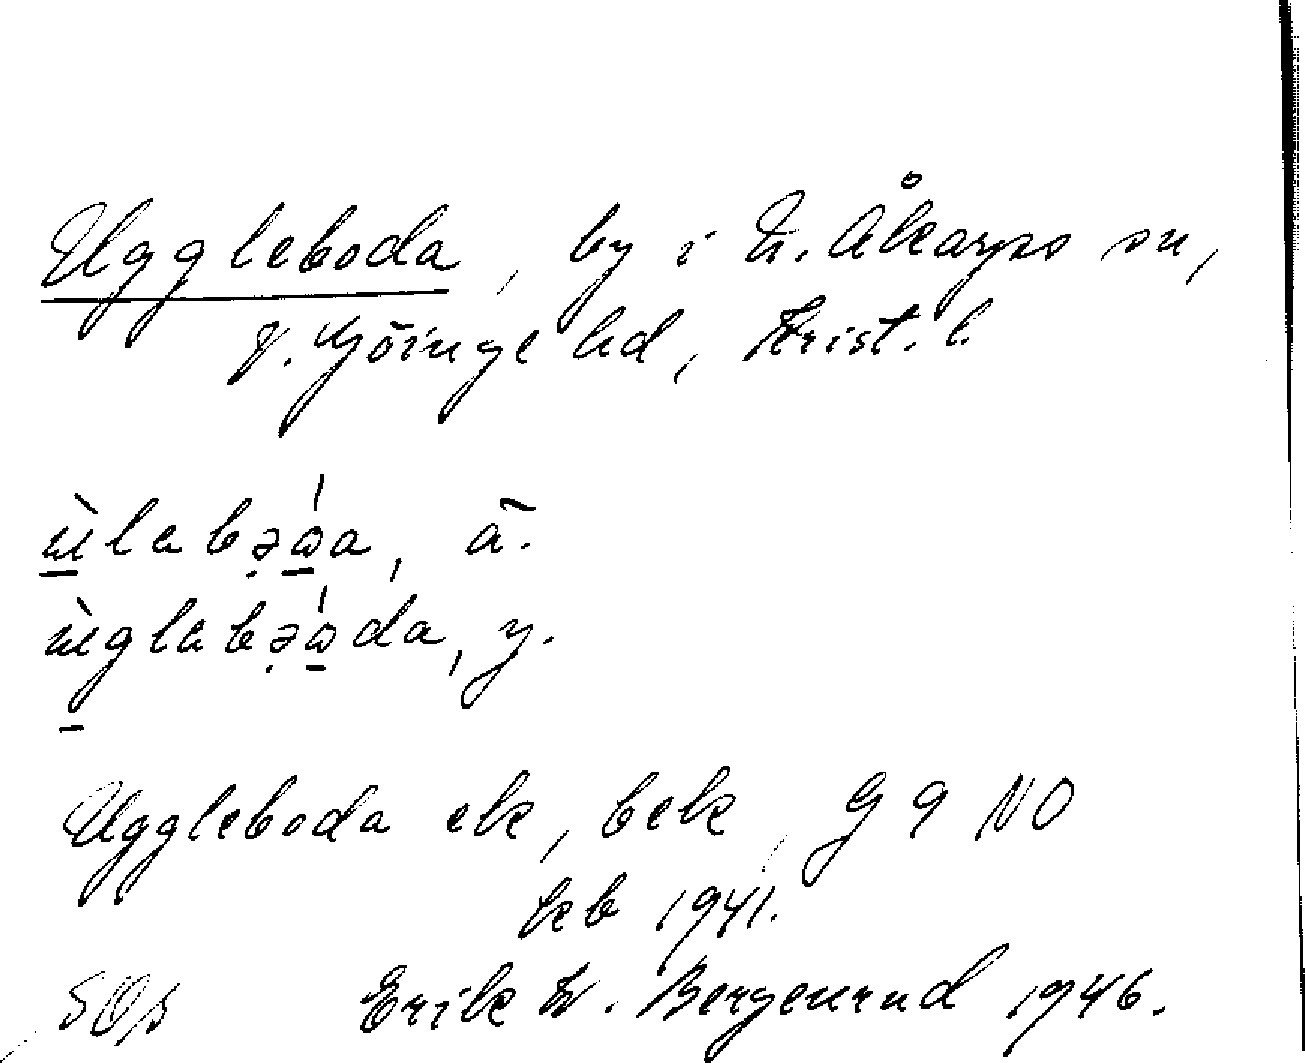 Uggleboda, by i N. Åkarps sn,
V. Göinge hd, Krist. l.
ùlabəώ̱a, ā.
ùglabəώ̱da, y.
Uggleboda ek, bek, G 9 NO
kb 1941.
SOs Erik W. Bergenrud 1946.